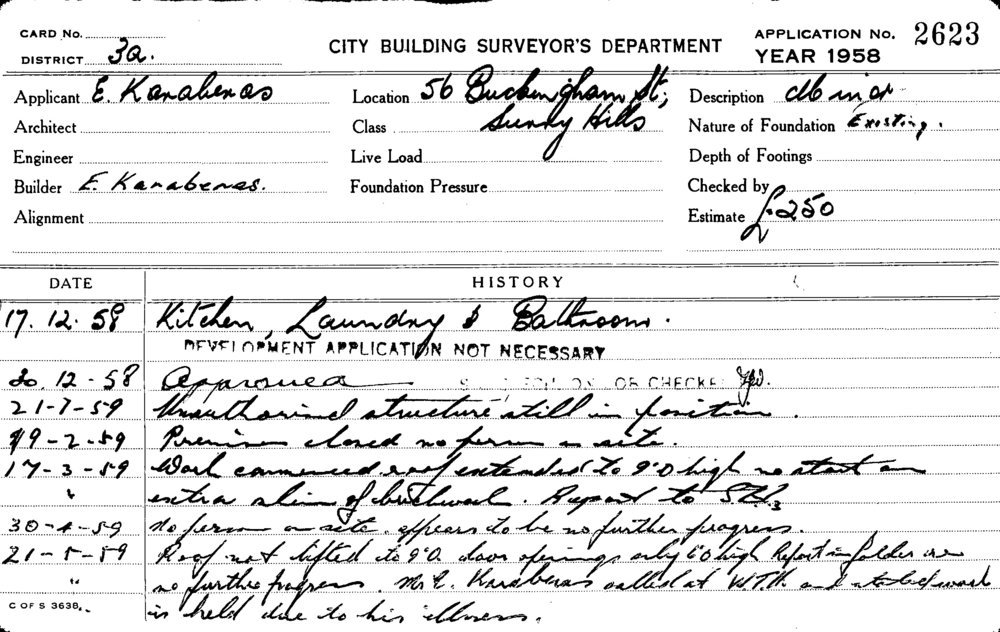 CARD No.
DISTRICT 3a.
CITY BUILDING SURVEYOR'S DEPARTMENT
APPLICATION No. 2623
YEAR 1958
Applicant E. Karabenas
Location 56 Buckingham St;
Description Minor
Architect
Class Surry Hills
Nature of Foundation Existing.
Engineer
Live Load
Depth of Footings
Builder E. Karabenas.
Foundation Pressure
Checked by
Alignment
Estimate £250
DATE HISTORY
17.12.58 Kitchen, Laundry & Bathroom.
DEVELOPMENT APPLICATION NOT NECESSARY
12-58 Approved OR CHECKE
21-7-59 Unauthorised structure still in position.
2-59 Premises closed no person on site.
17-3-59 Work commenced roof extended to 9'0 high no start on
" extra skin of brickwork. Report to
30-4-59 No person on site. appears to be no further progress.
21-5-59 Roof not lifted to 9'0. door openings only 6'0 high Report in folder
" no further progress. Mr E. Karabenas called at W.T.H. and stated work
is held due to his illness.
C OF S 3638